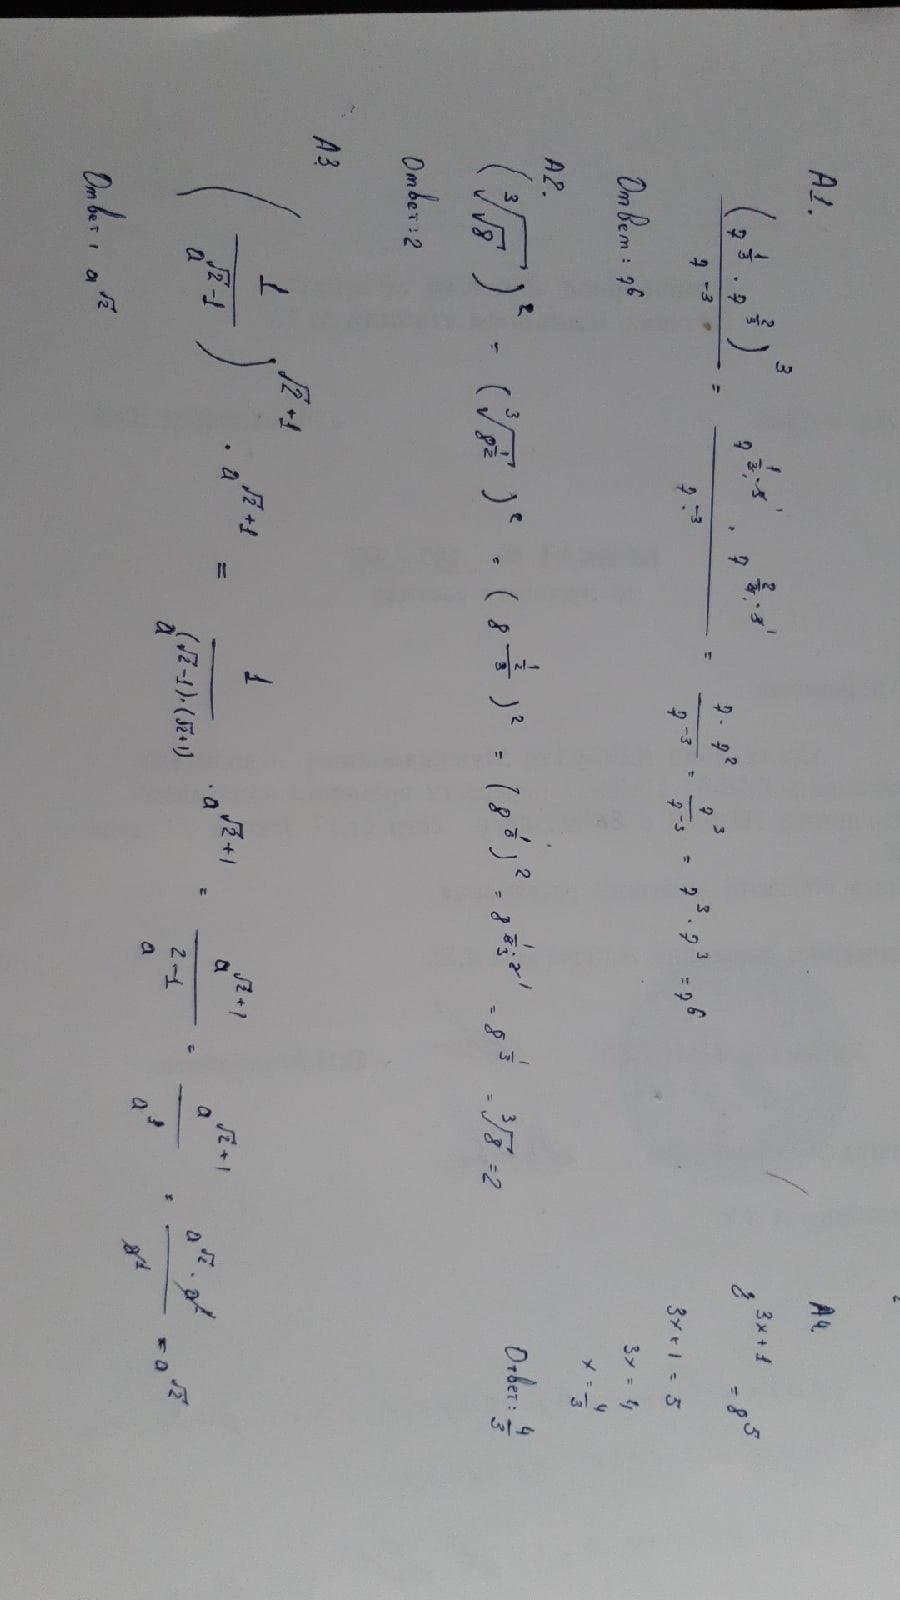 А1.
(7^{1/3} · 7^{2/3})^3 / 7^{-3} = 7^{1/3 · 3} · 7^{2/3 · 3} / 7^{-3} = 7 · 7^2 / 7^{-3} = 7^3 / 7^{-3} = 7^3 · 7^3 = 7^6
Ответ: 7^6
А2.
(∛√8)^2 = (∛8^{1/2})^2 = (8^{\frac{1/2}{3}})^2 = (8^{1/6})^2 = 8^{1/6 · 2} = 8^{1/3} = ∛8 = 2
Ответ: 2
А3.
(1 / a^{√2-1})^{√2+1} · a^{√2+1} = 1 / a^{(√2-1)·(√2+1)} · a^{√2+1} = a^{√2+1} / a^{2-1} = a^{√2+1} / a^1 = a^{√2} · a^1 / a^1 = a^{√2}
Ответ: a^{√2}
А4.
8^{3x+1} = 8^5
3x+1 = 5
3x = 4
x = 4/3
Ответ: 4/3